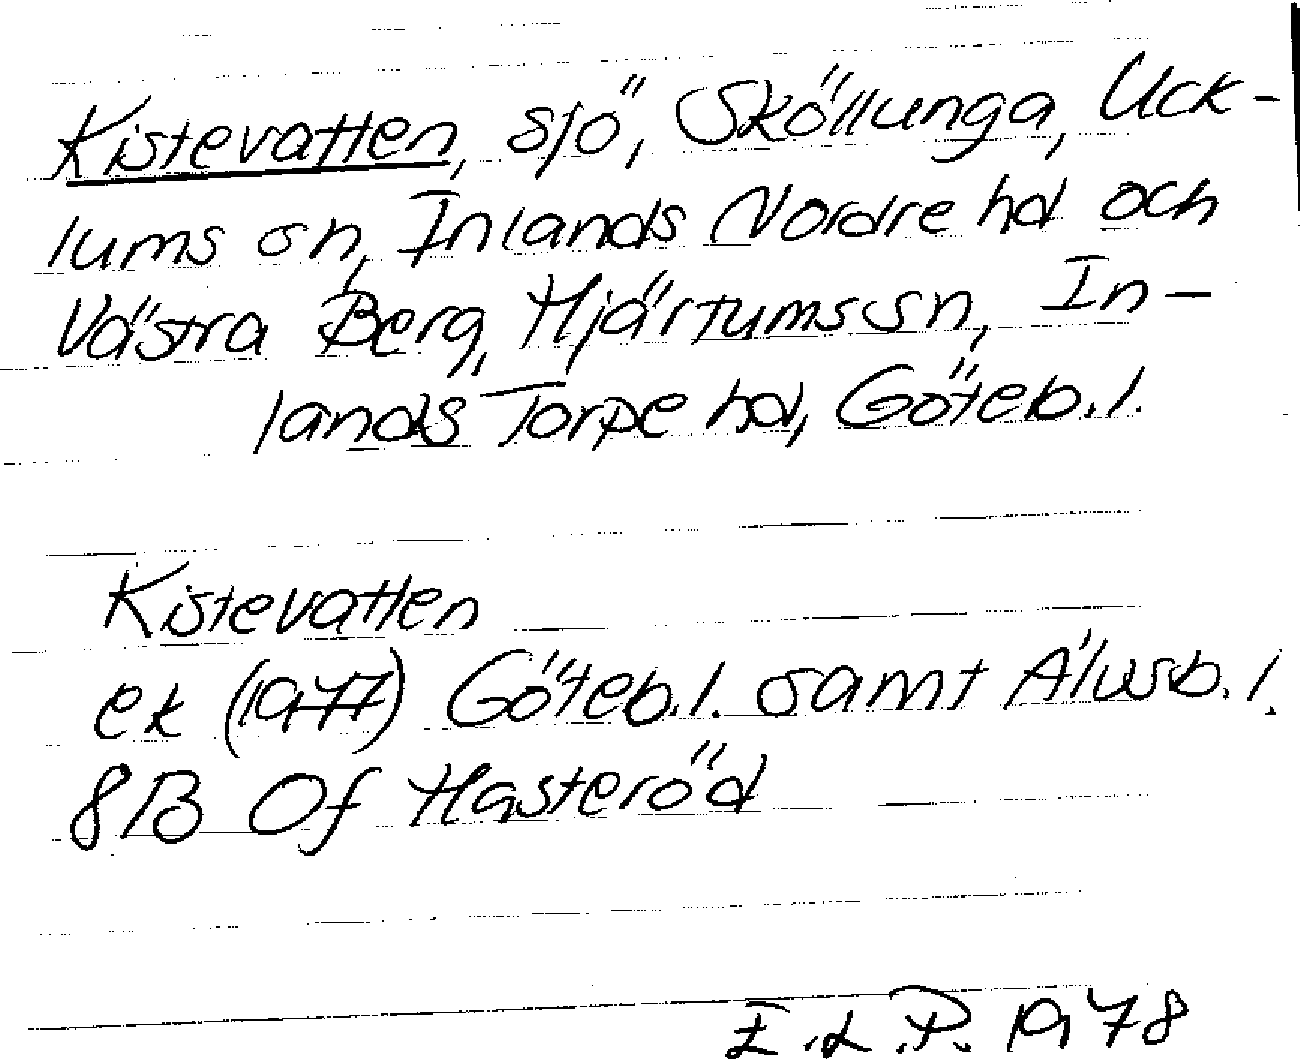 Kistevatten, sjö, Sköllunga, Uck-
lums sn, Inlands Nordre hd och
Västra Berg, Hjärtums sn, In-
lands Torpe hd, Göteb.l.
Kistevatten
ek (1977) Göteb.l. samt Älvsb.l.
8B Of Hasteröd
E.L.P. 1978